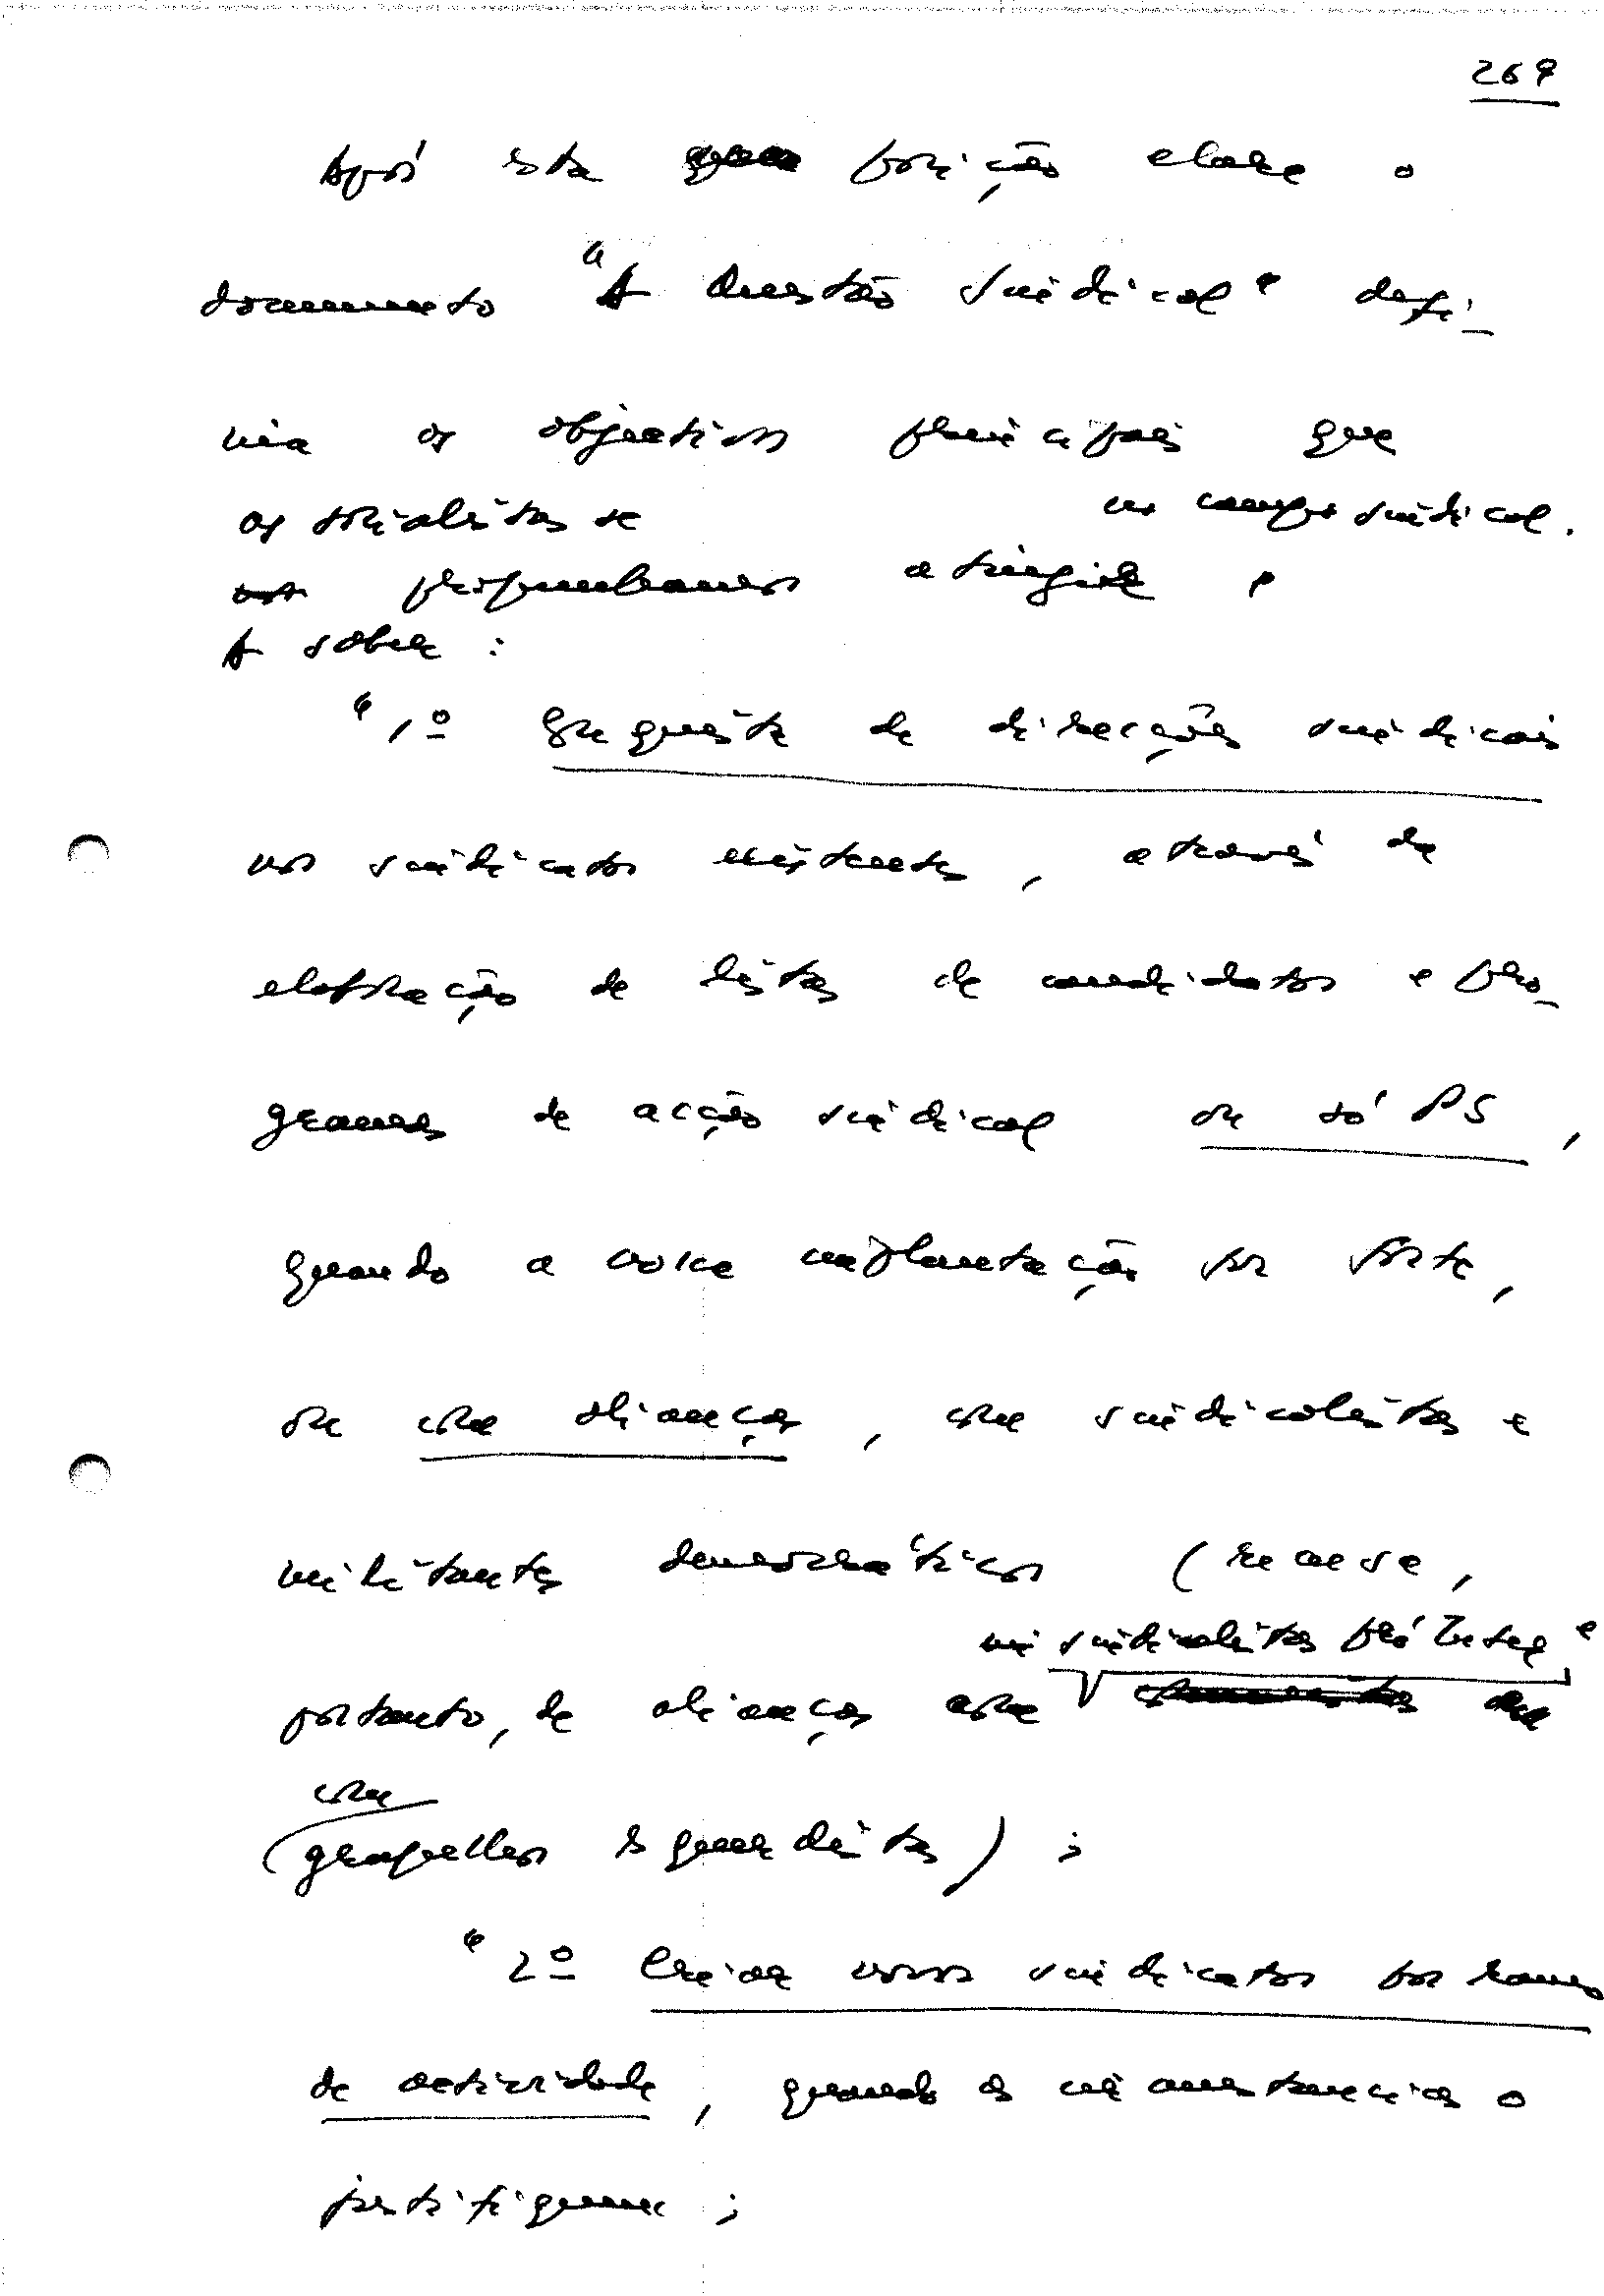 269
Após esta posição clara o
documento "A Questão Sindical" defi-
nia os objectivos principais que
os socialistas se no campo sindical.
propunham atingir
A saber:
"1º Conquista de direcções sindicais
nos sindicatos existentes, através de
elaboração de listas de candidatos e pro-
gramas de acção sindical ou só PS,
quando a nossa implantação for forte,
ou com alianças, com sindicalistas e
militantes democráticos (recusa,
sindicalistas pró Inter e
portanto, de alianças com
com
grupelhos esquerdistas);
"2º Criar novos sindicatos por ramos
de actividade, quando as circunstâncias o
justifiquem;